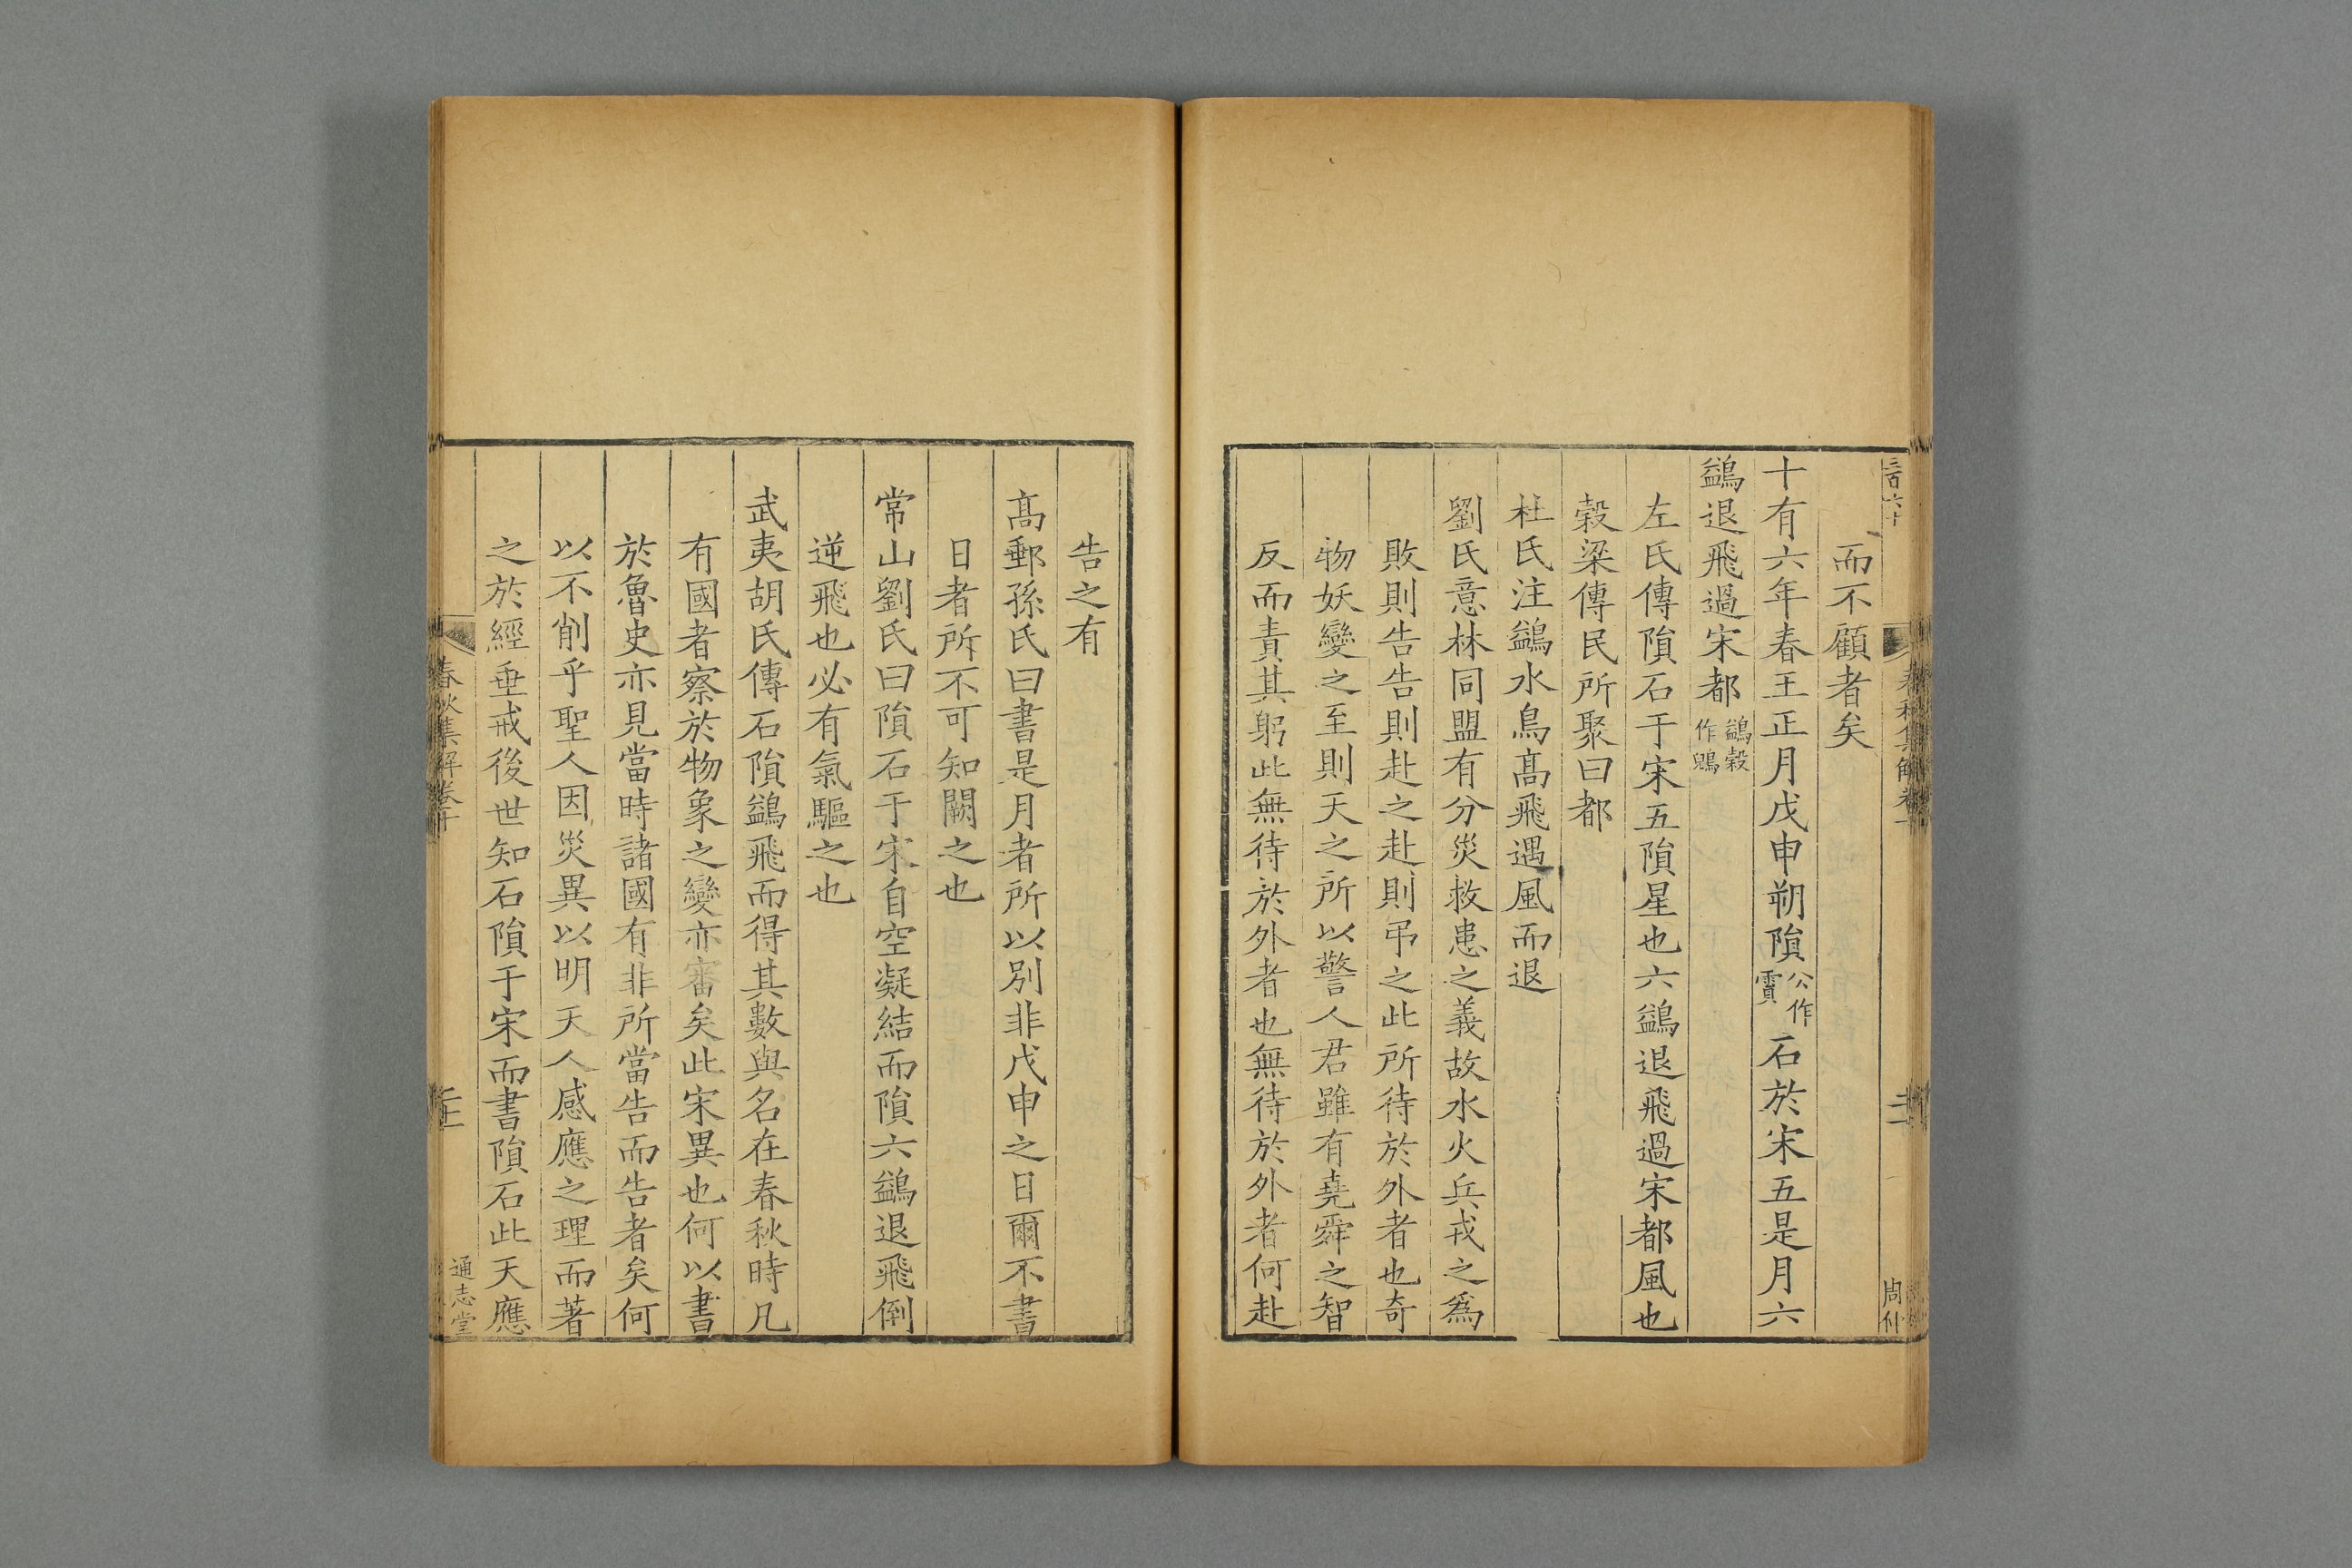 而不顧者矣
十有六年春王正月戊申朔隕公作霣石於宋五是月六
鷁退飛過宋都鷁穀作鶂
左氏傳隕石于宋五隕星也六鷁退飛過宋都風也
穀梁傳民所聚曰都
杜氏注鷁水鳥髙飛遇風而退
劉氏意林同盟有分災救患之義故水火兵戎之為
敗則告告則赴之赴則弔之此所待於外者也奇
物妖變之至則天之所以警人君雖有堯舜之智
反而責其躬此無待於外者也無待於外者何赴
告之有
髙郵孫氏曰書是月者所以别非戊申之日爾不書
日者所不可知闕之也
常山劉氏曰隕石于宋自空凝結而隕六鷁退飛倒
逆飛也必有氣驅之也
武夷胡氏傳石隕鷁飛而得其數與名在春秋時凡
有國者察於物象之變亦審矣此宋異也何以書
於魯史亦見當時諸國有非所當告而告者矣何
以不削乎聖人因災異以明天人感應之理而著
之於經垂戒後世知石隕于宋而書隕石此天應
春秋集解卷十
通志堂